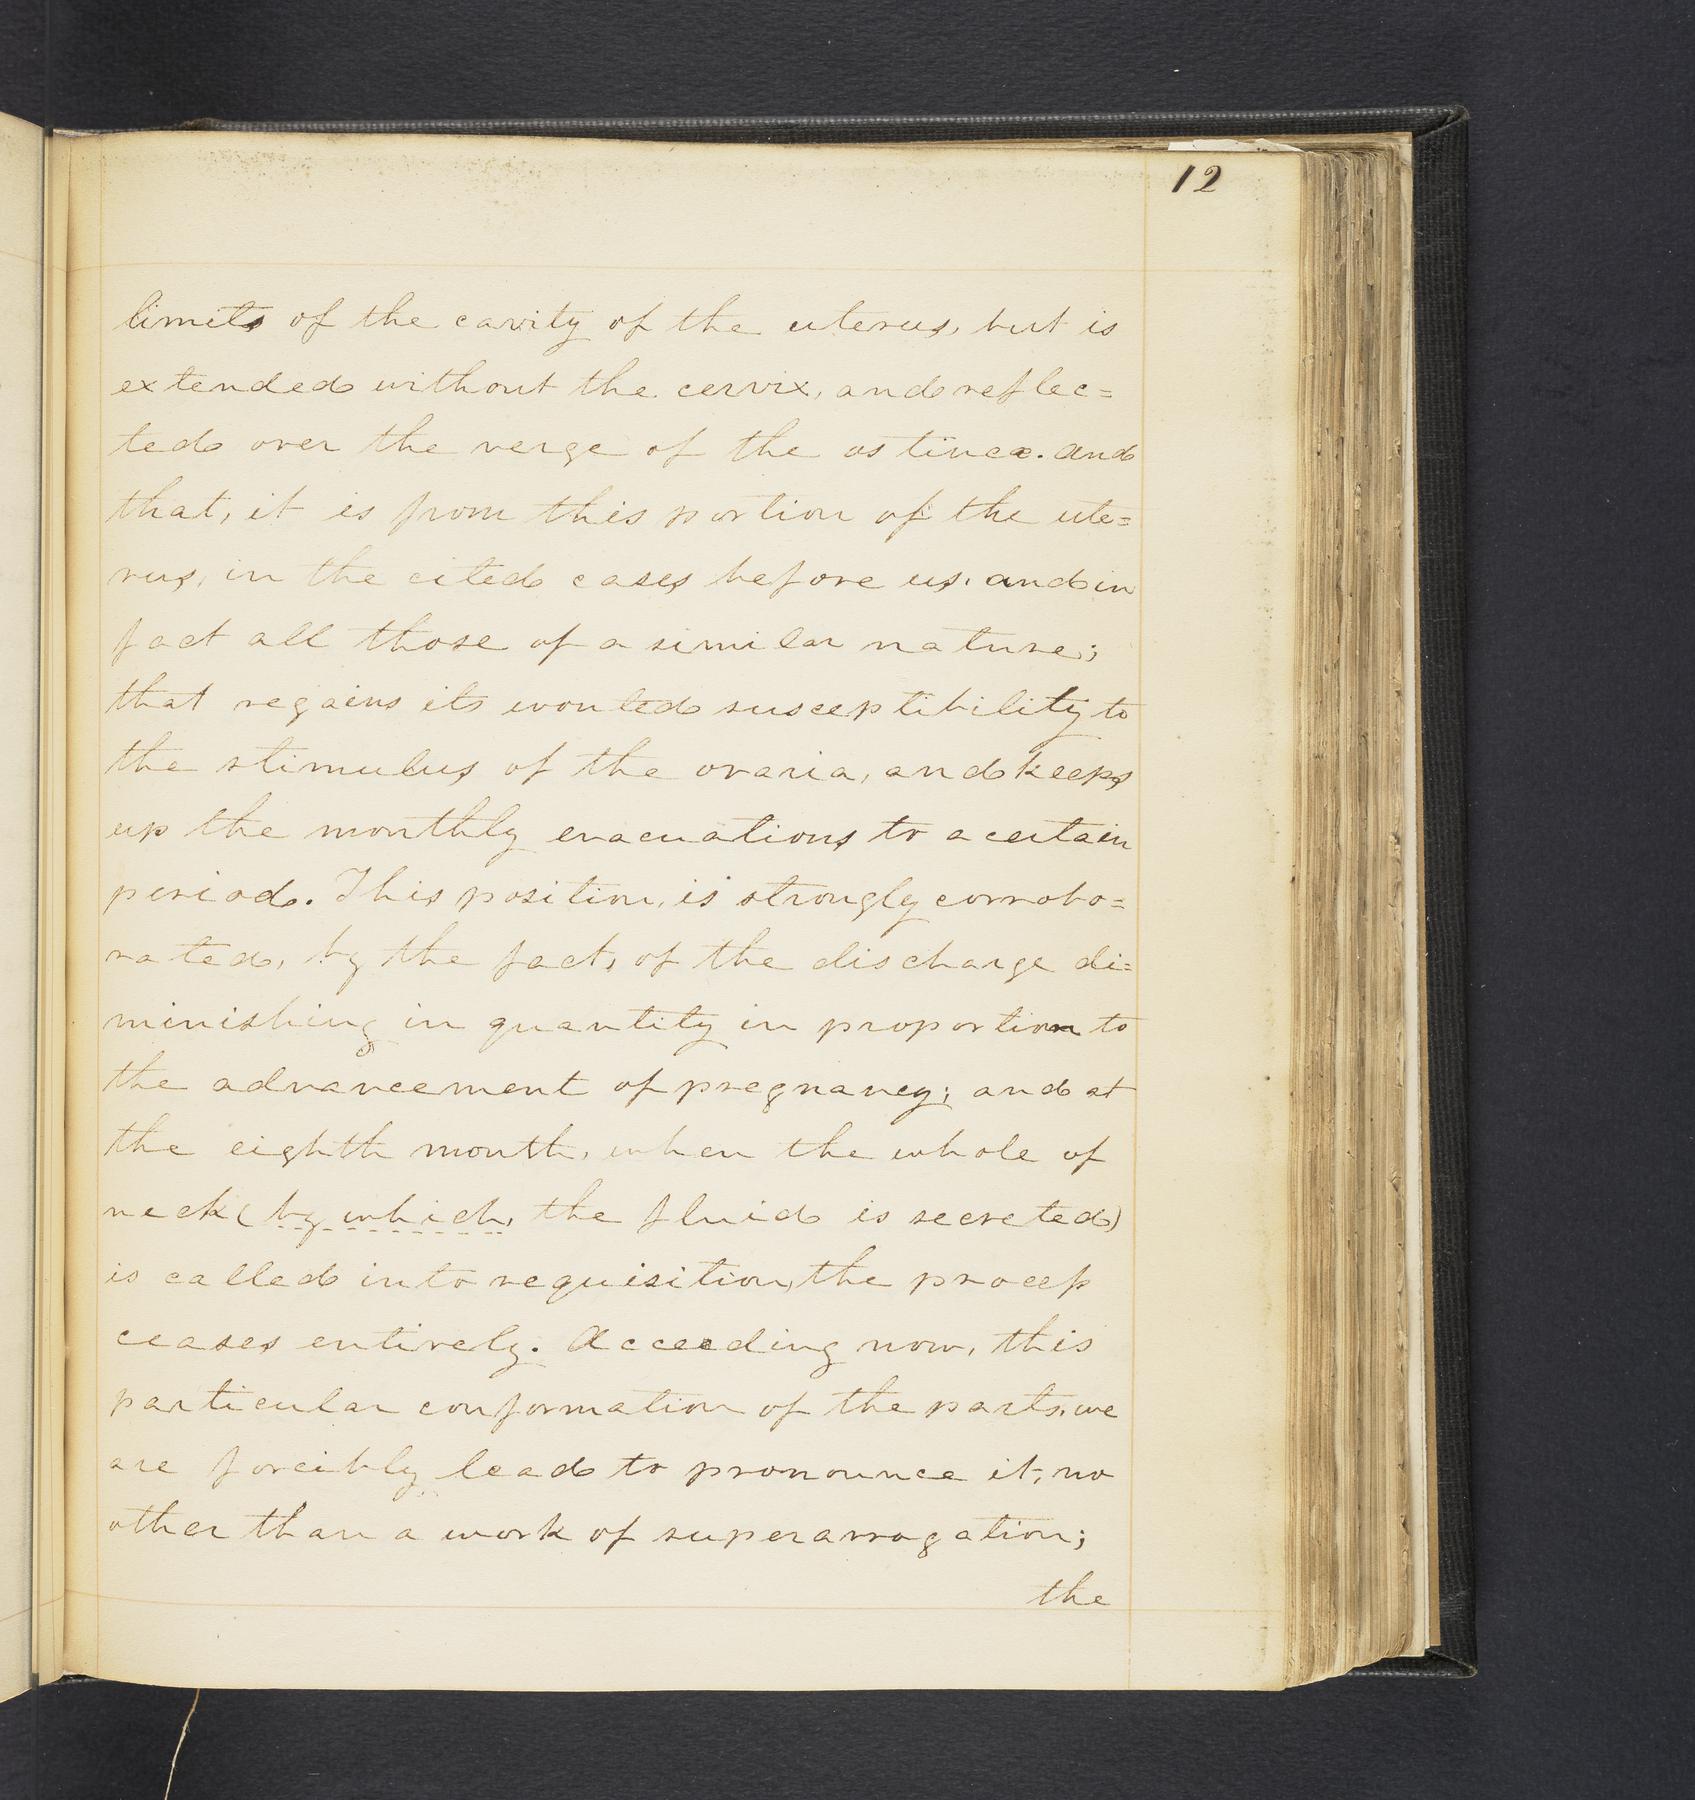 12
limits of the cavity of the uterus, but is
extended without the cervix, and reflec=
ted over the verge of the os tincæ. and
that, it is from this portion of the ute=
rus, in the cited cases before us, and in
fact all those of a similar nature;
that regains its wonted susceptibility to
the stimulus of the ovaria, and keeps
up the monthly evacuations to a certain
period. This position, is strongly corrobo=
rated, by the fact, of the discharge di=
minishing in quantity in proportion to
the advancement of pregnancy; and at
the eighth month, when the whole of
neck (by which, the fluid is secreted)
is called into requisition, the process
ceases entirely. Acceeding now, this
particular conformation of the parts, we
are forcibly lead to pronounce it, no
other than a work of superarrogation;
the